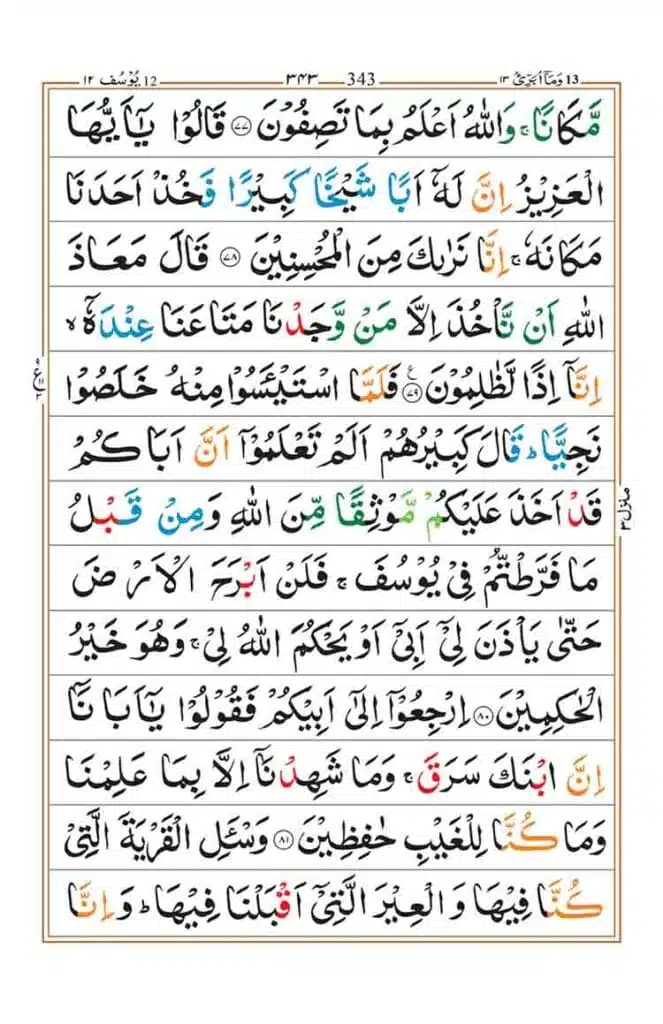 12 يُوْسُف ١٢ ٣٤٣ 343 وَمَآ اُبَرِّئُ ١٣ 13
مَّكَانًا ۚ وَاللّٰهُ اَعْلَمُ بِمَا تَصِفُوْنَ ۝٧٧ قَالُوْا يٰۤاَيُّهَا
الْعَزِيْزُ اِنَّ لَهٗۤ اَبًا شَيْخًا كَبِيْرًا فَخُذْ اَحَدَنَا
مَكَانَهٗ ۚ اِنَّا نَرٰىكَ مِنَ الْمُحْسِنِيْنَ ۝٧٨ قَالَ مَعَاذَ
اللّٰهِ اَنْ نَّاْخُذَ اِلَّا مَنْ وَّجَدْنَا مَتَاعَنَا عِنْدَهٗۤ ۙ
اِنَّاۤ اِذًا لَّظٰلِمُوْنَ ۝٧٩ ع فَلَمَّا اسْتَيْـَٔسُوْا مِنْهُ خَلَصُوْا
نَجِيًّا ؕ قَالَ كَبِيْرُهُمْ اَلَمْ تَعْلَمُوْۤا اَنَّ اَبَاكُمْ
قَدْ اَخَذَ عَلَيْكُمْ مَّوْثِقًا مِّنَ اللّٰهِ وَمِنْ قَبْلُ
مَا فَرَّطْتُّمْ فِيْ يُوْسُفَ ۚ فَلَنْ اَبْرَحَ الْاَرْضَ
حَتّٰى يَاْذَنَ لِيْۤ اَبِيْۤ اَوْ يَحْكُمَ اللّٰهُ لِيْ ۚ وَهُوَ خَيْرُ
الْحٰكِمِيْنَ ۝٨٠ اِرْجِعُوْۤا اِلٰۤى اَبِيْكُمْ فَقُوْلُوْا يٰۤاَبَانَاۤ
اِنَّ ابْنَكَ سَرَقَ ۚ وَمَا شَهِدْنَاۤ اِلَّا بِمَا عَلِمْنَا
وَمَا كُنَّا لِلْغَيْبِ حٰفِظِيْنَ ۝٨١ وَسْـَٔلِ الْقَرْيَةَ الَّتِيْ
كُنَّا فِيْهَا وَالْعِيْرَ الَّتِيْۤ اَقْبَلْنَا فِيْهَا ؕ وَاِنَّا
منزل ٣